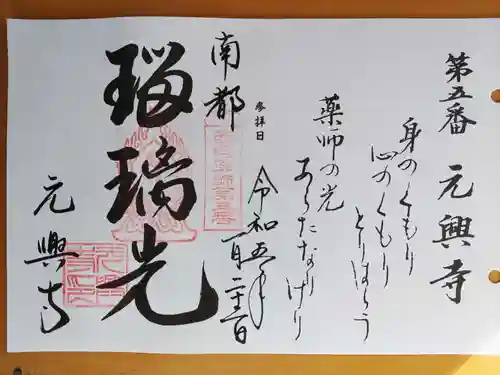 第五番 元興寺
身のくもり
心のくもり
とりはらう
薬師の光
あらたなりけり
参拝日
令和五年
一月二十二日
南都
瑠瑞光
元興寺